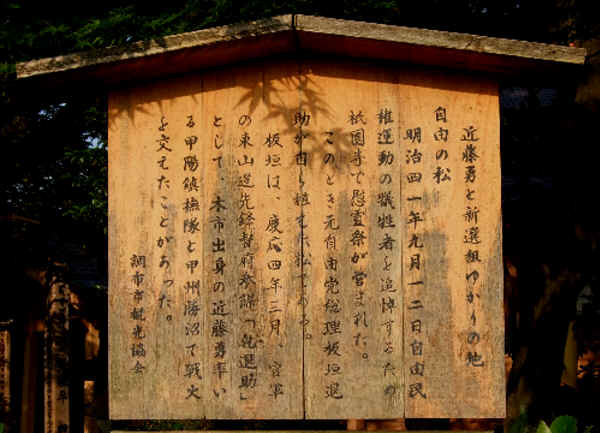 近藤勇と新選組ゆかりの地
自由の松
明治四一年九月一二日自由民
権運動の犠牲者を追悼するため
祇園寺で慰霊祭が営まれた。
このとき元自由党総理板垣退
助が自ら植えた松である。
板垣は、慶応四年三月、官軍
の東山道先鋒督府参謀「乾退助」
として、本市出身の近藤勇率い
る甲陽鎮撫隊と甲州勝沼で戦火
を交えたことがあった。
調布市観光協会